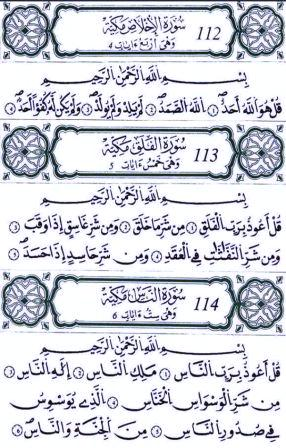 سُورَةُ الإِخْلَاصِ مَكِّيَّة 112
وَهِيَ أَرْبَعُ ءَايَاتٍ 4
بِسْمِ اللَّهِ الرَّحْمَٰنِ الرَّحِيمِ
قُلْ هُوَ اللَّهُ أَحَدٌ ① اللَّهُ الصَّمَدُ ② لَمْ يَلِدْ وَلَمْ يُولَدْ ③ وَلَمْ يَكُن لَّهُ كُفُوًا أَحَدٌ ④
سُورَةُ الْفَلَقِ مَكِّيَّة 113
وَهِيَ خَمْسُ ءَايَاتٍ 5
بِسْمِ اللَّهِ الرَّحْمَٰنِ الرَّحِيمِ
قُلْ أَعُوذُ بِرَبِّ الْفَلَقِ ① مِن شَرِّ مَا خَلَقَ ② وَمِن شَرِّ غَاسِقٍ إِذَا وَقَبَ ③
وَمِن شَرِّ النَّفَّٰثَٰتِ فِي الْعُقَدِ ④ وَمِن شَرِّ حَاسِدٍ إِذَا حَسَدَ ⑤
سُورَةُ النَّاسِ مَكِّيَّة 114
وَهِيَ سِتُّ ءَايَاتٍ 6
بِسْمِ اللَّهِ الرَّحْمَٰنِ الرَّحِيمِ
قُلْ أَعُوذُ بِرَبِّ النَّاسِ ① مَلِكِ النَّاسِ ② إِلَٰهِ النَّاسِ ③
مِن شَرِّ الْوَسْوَاسِ الْخَنَّاسِ ④ الَّذِي يُوَسْوِسُ
فِي صُدُورِ النَّاسِ ⑤ مِنَ الْجِنَّةِ وَالنَّاسِ ⑥